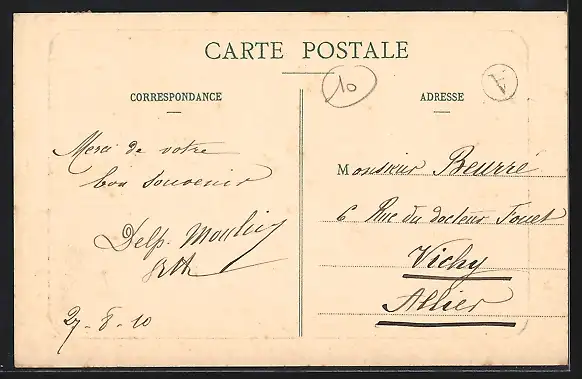 CARTE POSTALE
10
A
CORRESPONDANCE
ADRESSE
Merci de votre
bon souvenir
Delp. Moulin
27-8-10
Monsieur Beurré
6 Rue du docteur Fouet
Vichy
Allier